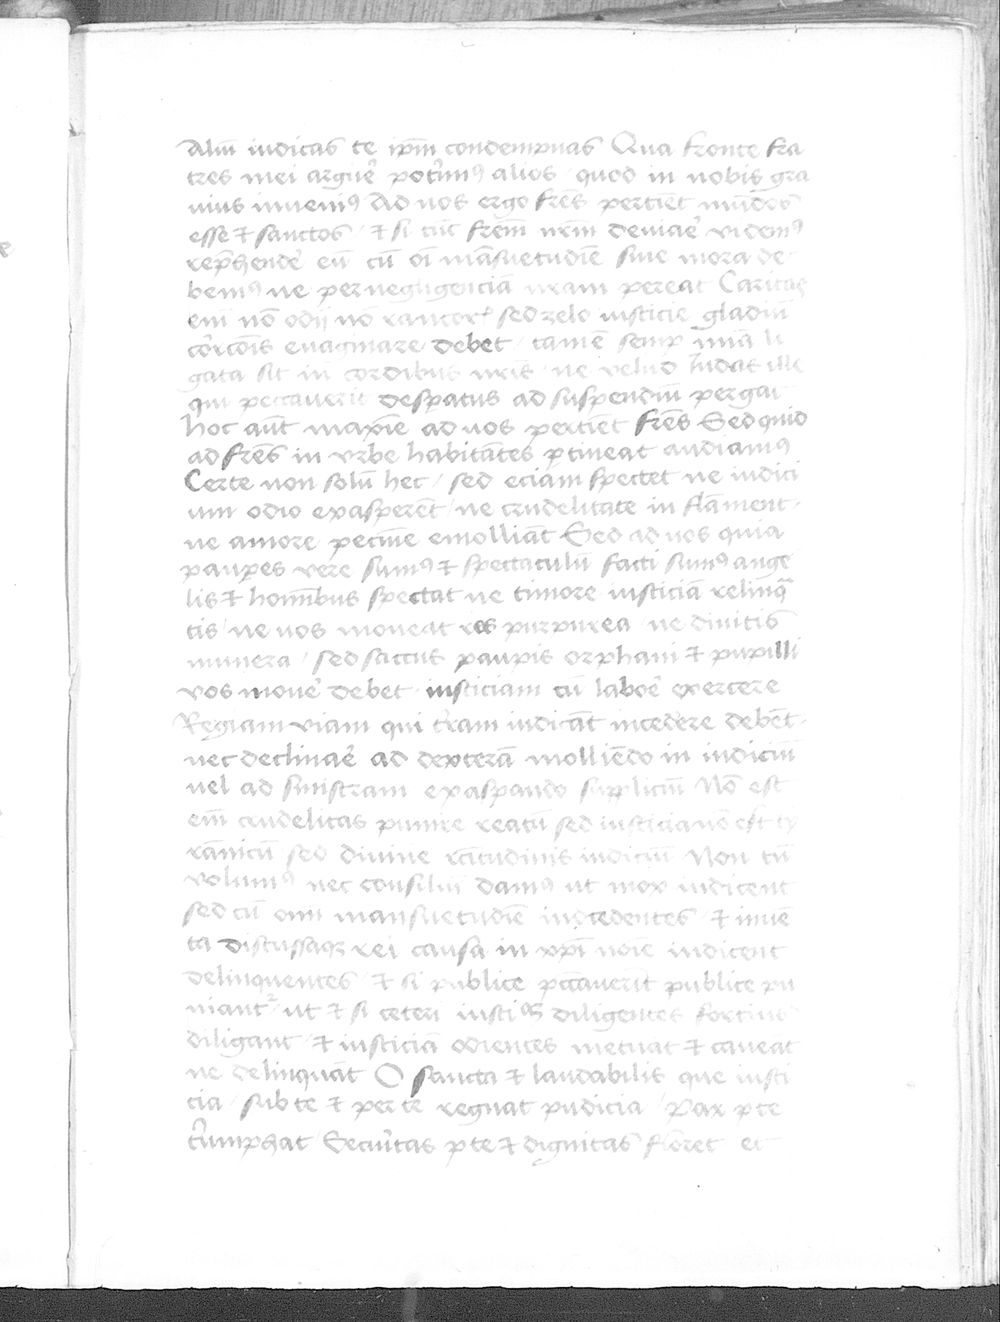 Aliū iudicas te ip̄m condempnas Qua fronte fra
tres mei arguer̄ poterimꝰ alios / quod in nobis gra
uius inuenimꝰ Ad uos ergo fr̄es pertinēt mūdos
esse ⁊ sanctos / ⁊ si cū fr̄em nr̄m deuiar̄ videmꝰ
rep̄hender̄ eū cū oī māsuetudīe siue mora de
bemꝰ ne per negligenciā nr̄am pereat Caritas
enī nō odij nō rancor̄ sed zelo iusticie gladiū
corr̄cōis euaginare debet / tamē semp̄ unīa li
gata sit in cordibus nr̄is ne velud Iudas ille
qui peccauerit desp̄atus ad suspendiū pergat
hoc aūt maxīe ad uos pertinēt fr̄es Sed quid
ad fr̄es in vrbe habitātes ꝑtineat audiamꝰ
Certe non solū hec / sed eciam spectet ne iudici
um odio exasperēt / ne crudelitate in flāment
ne amore pecunīe emolliāt Sed ad uos quia
paup̄es vere sumꝰ ⁊ spectaculū facti sumꝰ ange
lis ⁊ hominībus spectat ne timore iusticiā relinq̄
tis / ne uos moueat res purpurea / ne diuitis
munera / sed saccus paup̄is orphani ⁊ pupilli
vos mouer̄ debet iusticiam cū labor̄e exercere
Regiam viam qui terrām iudicāt incedere debēt
nec declinar̄ ad dexterā molliēdo in iudiciū
uel ad sinistram exasp̄ando suppliciū Nō est
enī crudelitas punire reatū sed iusticia nō est ty
rānicū sed diuine rectitudinis iudiciū Non tn̄
volumꝰ nec consiliū damꝰ ut mox iudicent
sed cū omi mansuetudīe incedentes / ⁊ inuē
ta discussaqꝫ rei causa in xp̄i noīe iudicent
delinquentes / ⁊ si publice peccauerīt publice pu
niant̄ ut ⁊ si ceteri iusticiā diligentes fortius
diligant / ⁊ iusticiā odientes metuāt ⁊ caueāt
ne delinquāt O sancta ⁊ laudabilis que iusti
cia / sub te ⁊ per te regnat pudicia / Pax p te
triumphat Securitas p te ⁊ dignitas floret et